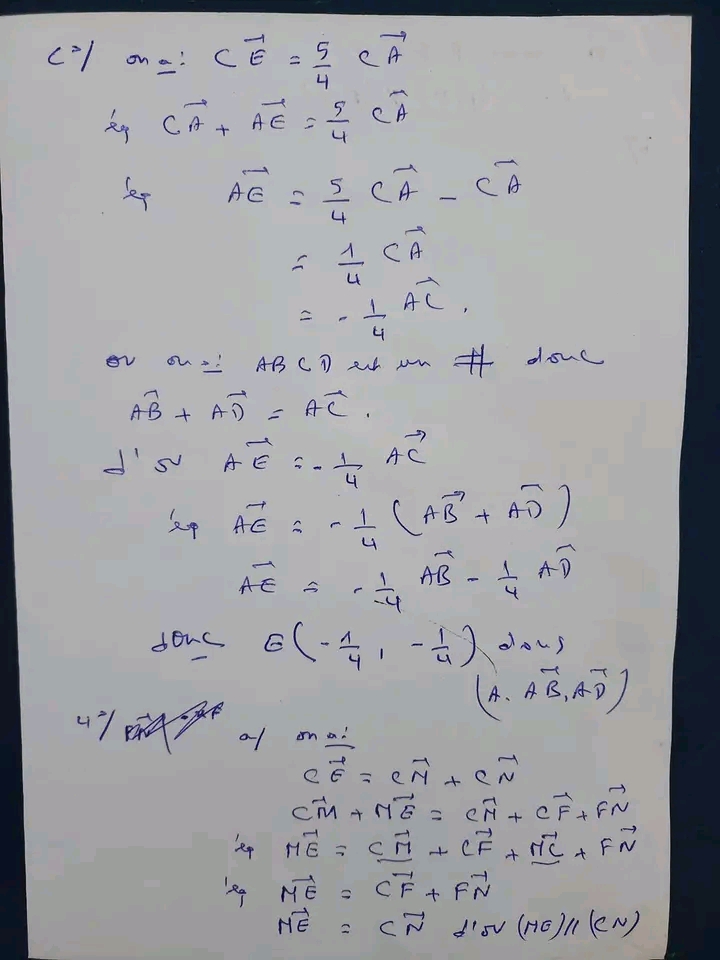 C°/ on a: CE⃗ = 5/4 CA⃗
éq CA⃗ + AE⃗ = 5/4 CA⃗
éq AE⃗ = 5/4 CA⃗ - CA⃗
= 1/4 CA⃗
= - 1/4 AC⃗.
or on a: ABCD est un # donc
AB⃗ + AD⃗ = AC⃗.
d'où AE⃗ = - 1/4 AC⃗
éq AE⃗ = - 1/4 (AB⃗ + AD⃗)
AE⃗ = - 1/4 AB⃗ - 1/4 AD⃗
donc E(-1/4, -1/4) dans
(A. AB⃗, AD⃗)
4°/ a/ on a:
CE⃗ = CM⃗ + CN⃗
CM⃗ + ME⃗ = CM⃗ + CF⃗ + FN⃗
éq ME⃗ = CM⃗ + CF⃗ + MC⃗ + FN⃗
éq ME⃗ = CF⃗ + FN⃗
ME⃗ = CN⃗ d'où (ME)//(CN)